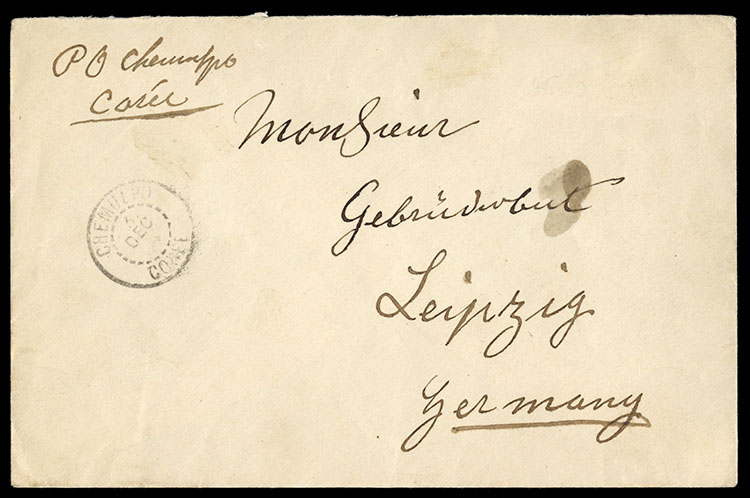 PO Chemulpo
Corée
Monsieur
Gebrüder
Leipzig
Germany
CHEMULPO
DEC
COREE